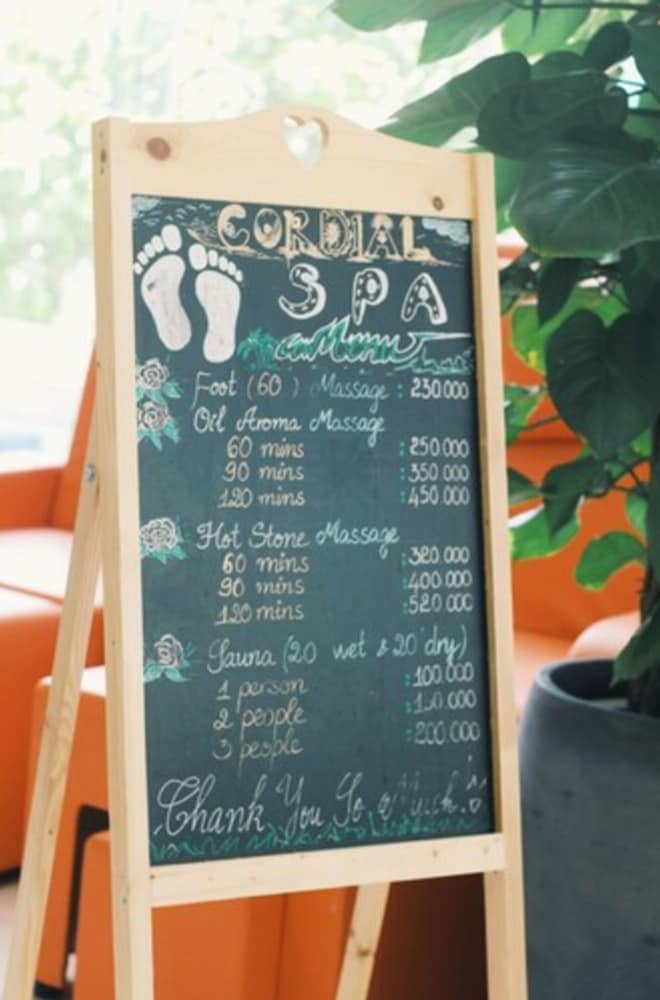 CORDIAL
SPA
Menu
Foot (60') Massage : 230.000
Oil Aroma Massage
60 mins : 250.000
90 mins : 350.000
120 mins : 450.000
Hot Stone Massage
60 mins : 320.000
90 mins : 400.000
120 mins : 520.000
Sauna (20' wet & 20' dry)
1 person : 100.000
2 people : 150.000
3 people : 200.000
Thank You So Much!